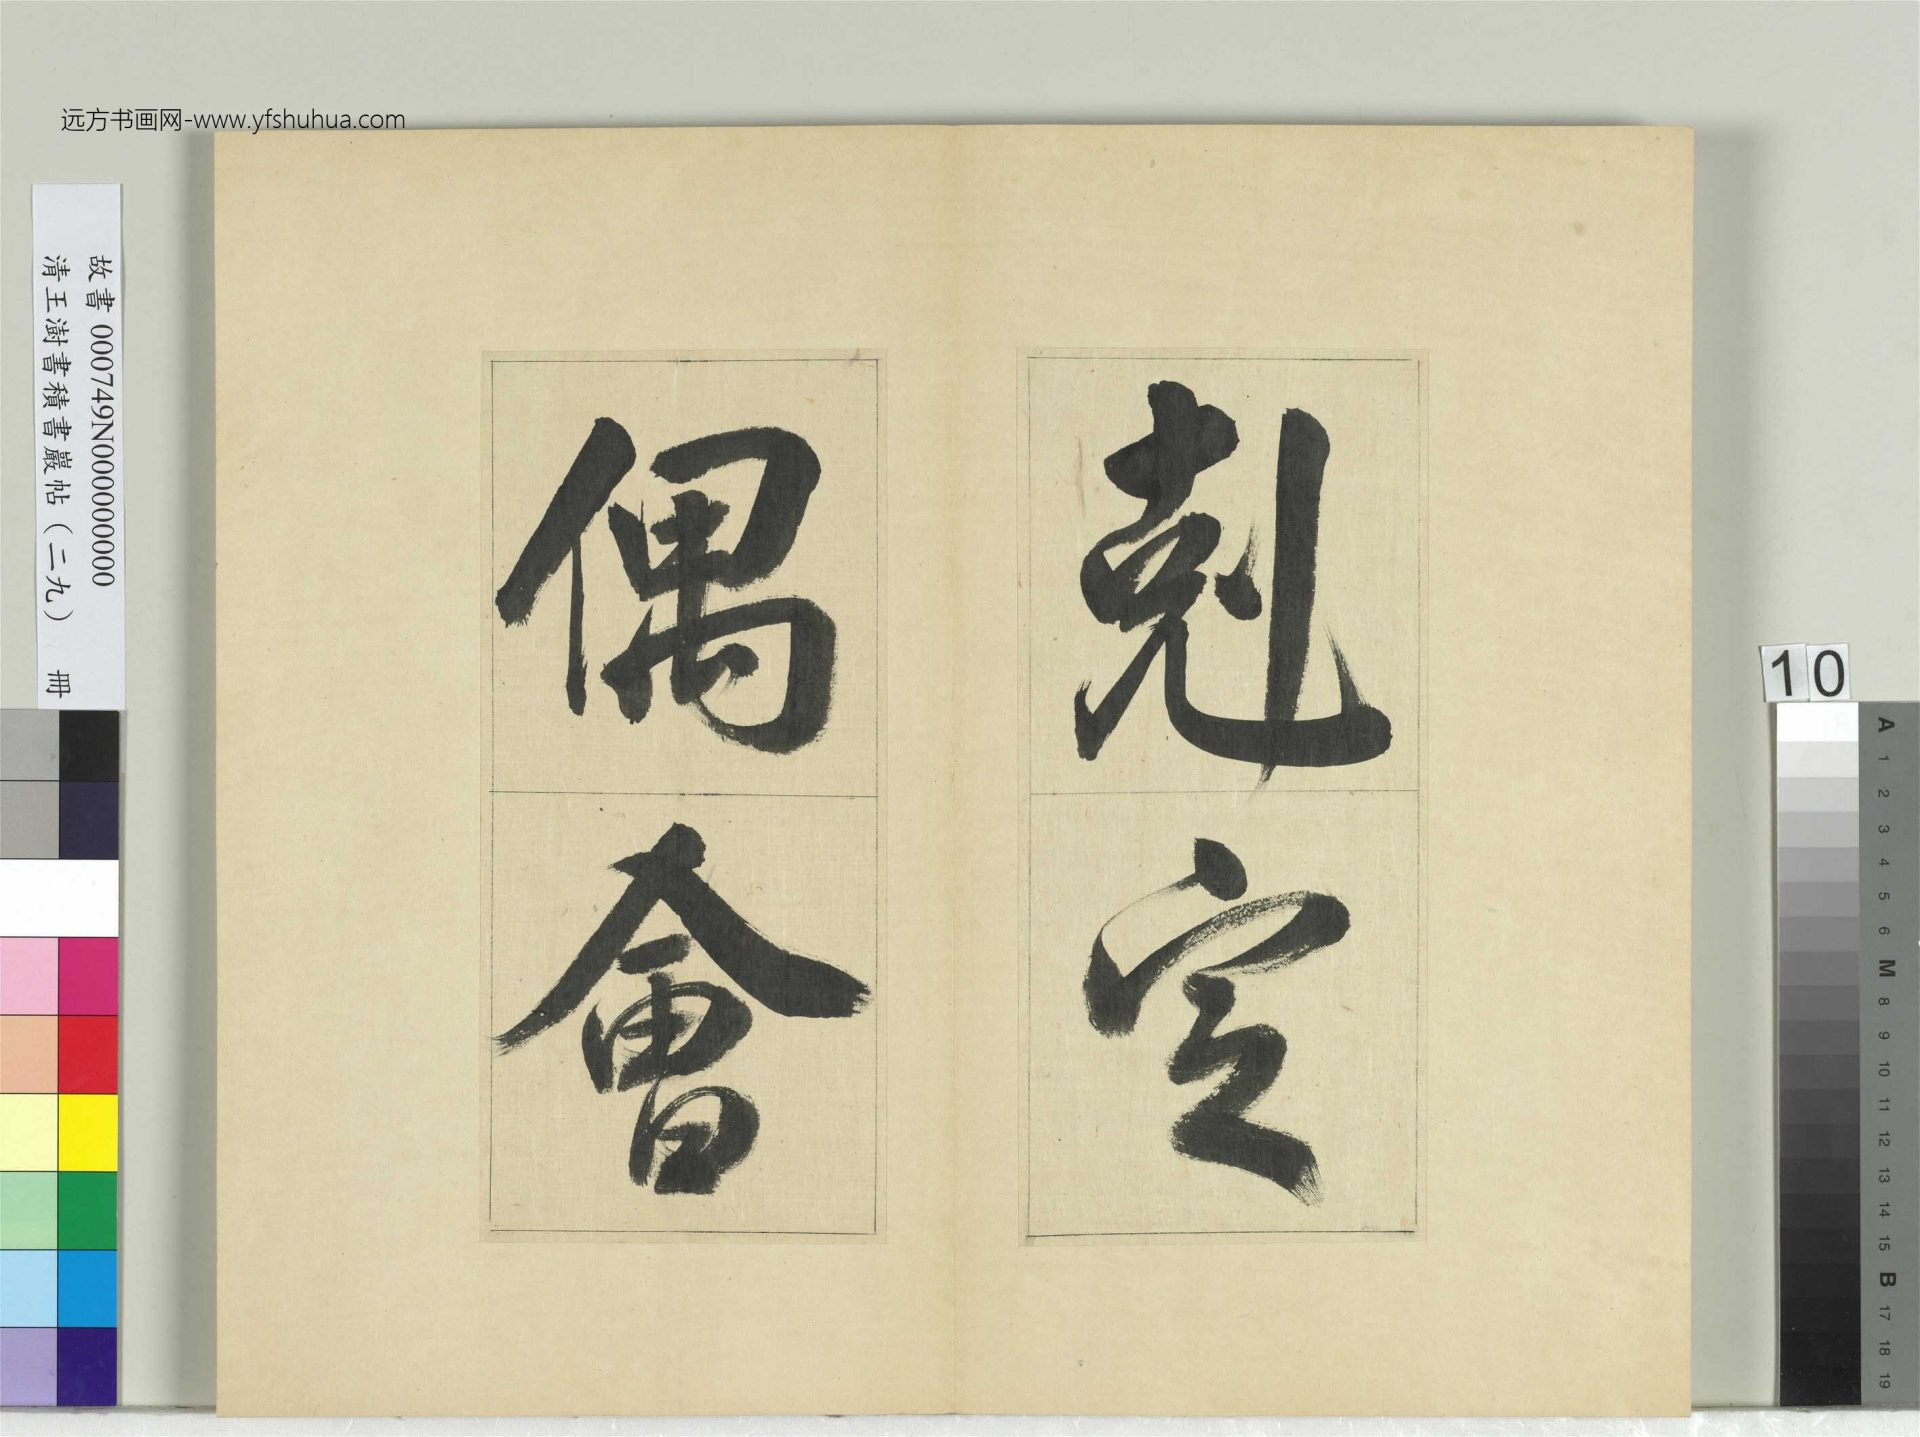 远方书画网-www.yfshuhua.com
故書 000749N000000000
清王澍書積書巖帖(二九) 冊
剋定
偶會
10
A
1
2
3
4
5
6
M
8
9
10
11
12
13
14
15
B
17
18
19